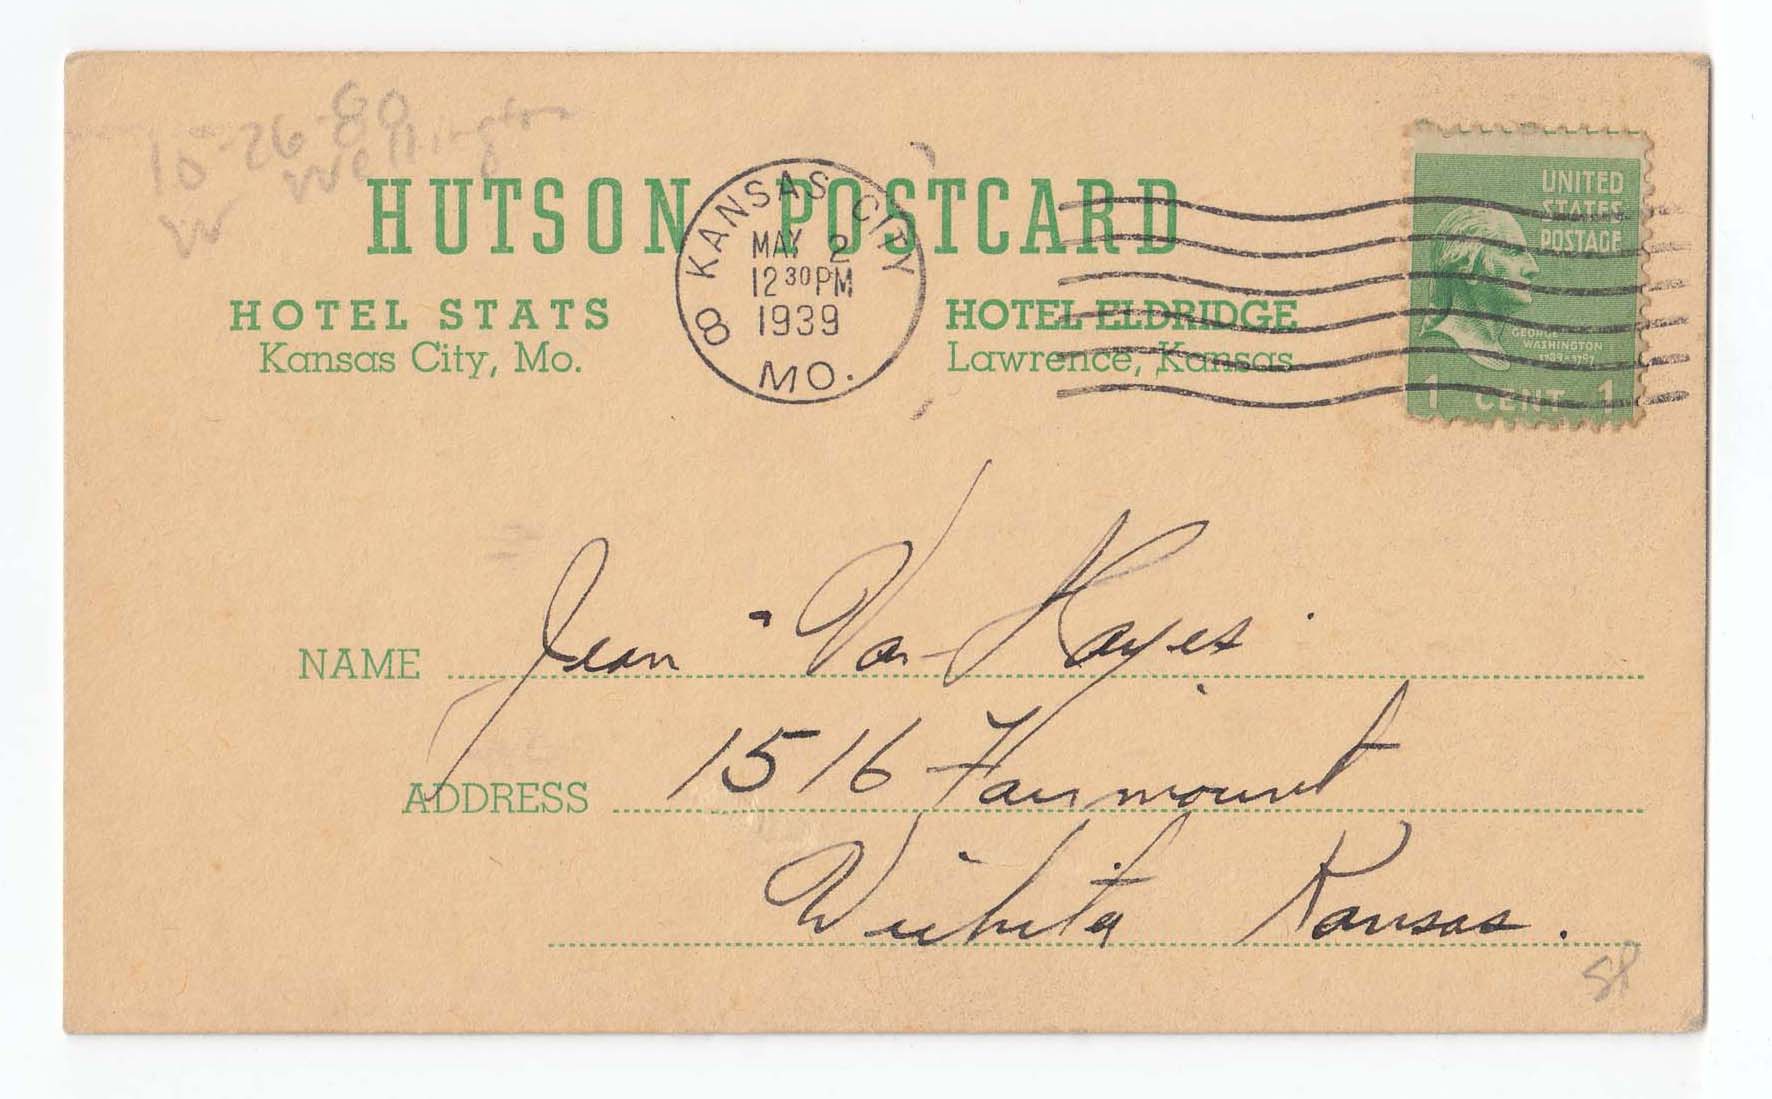 10-26-80
Wellington
W
HUTSON POSTCARD
KANSAS CITY
MAY 2
12 30 PM
1939
8
MO.
UNITED
STATES
POSTAGE
GEORGE
WASHINGTON
1789-1797
1 CENT 1
HOTEL STATS
Kansas City, Mo.
HOTEL ELDRIDGE
Lawrence, Kansas
NAME Jean Van Hayes
ADDRESS 1516 Fairmount
Wichita Kansas.